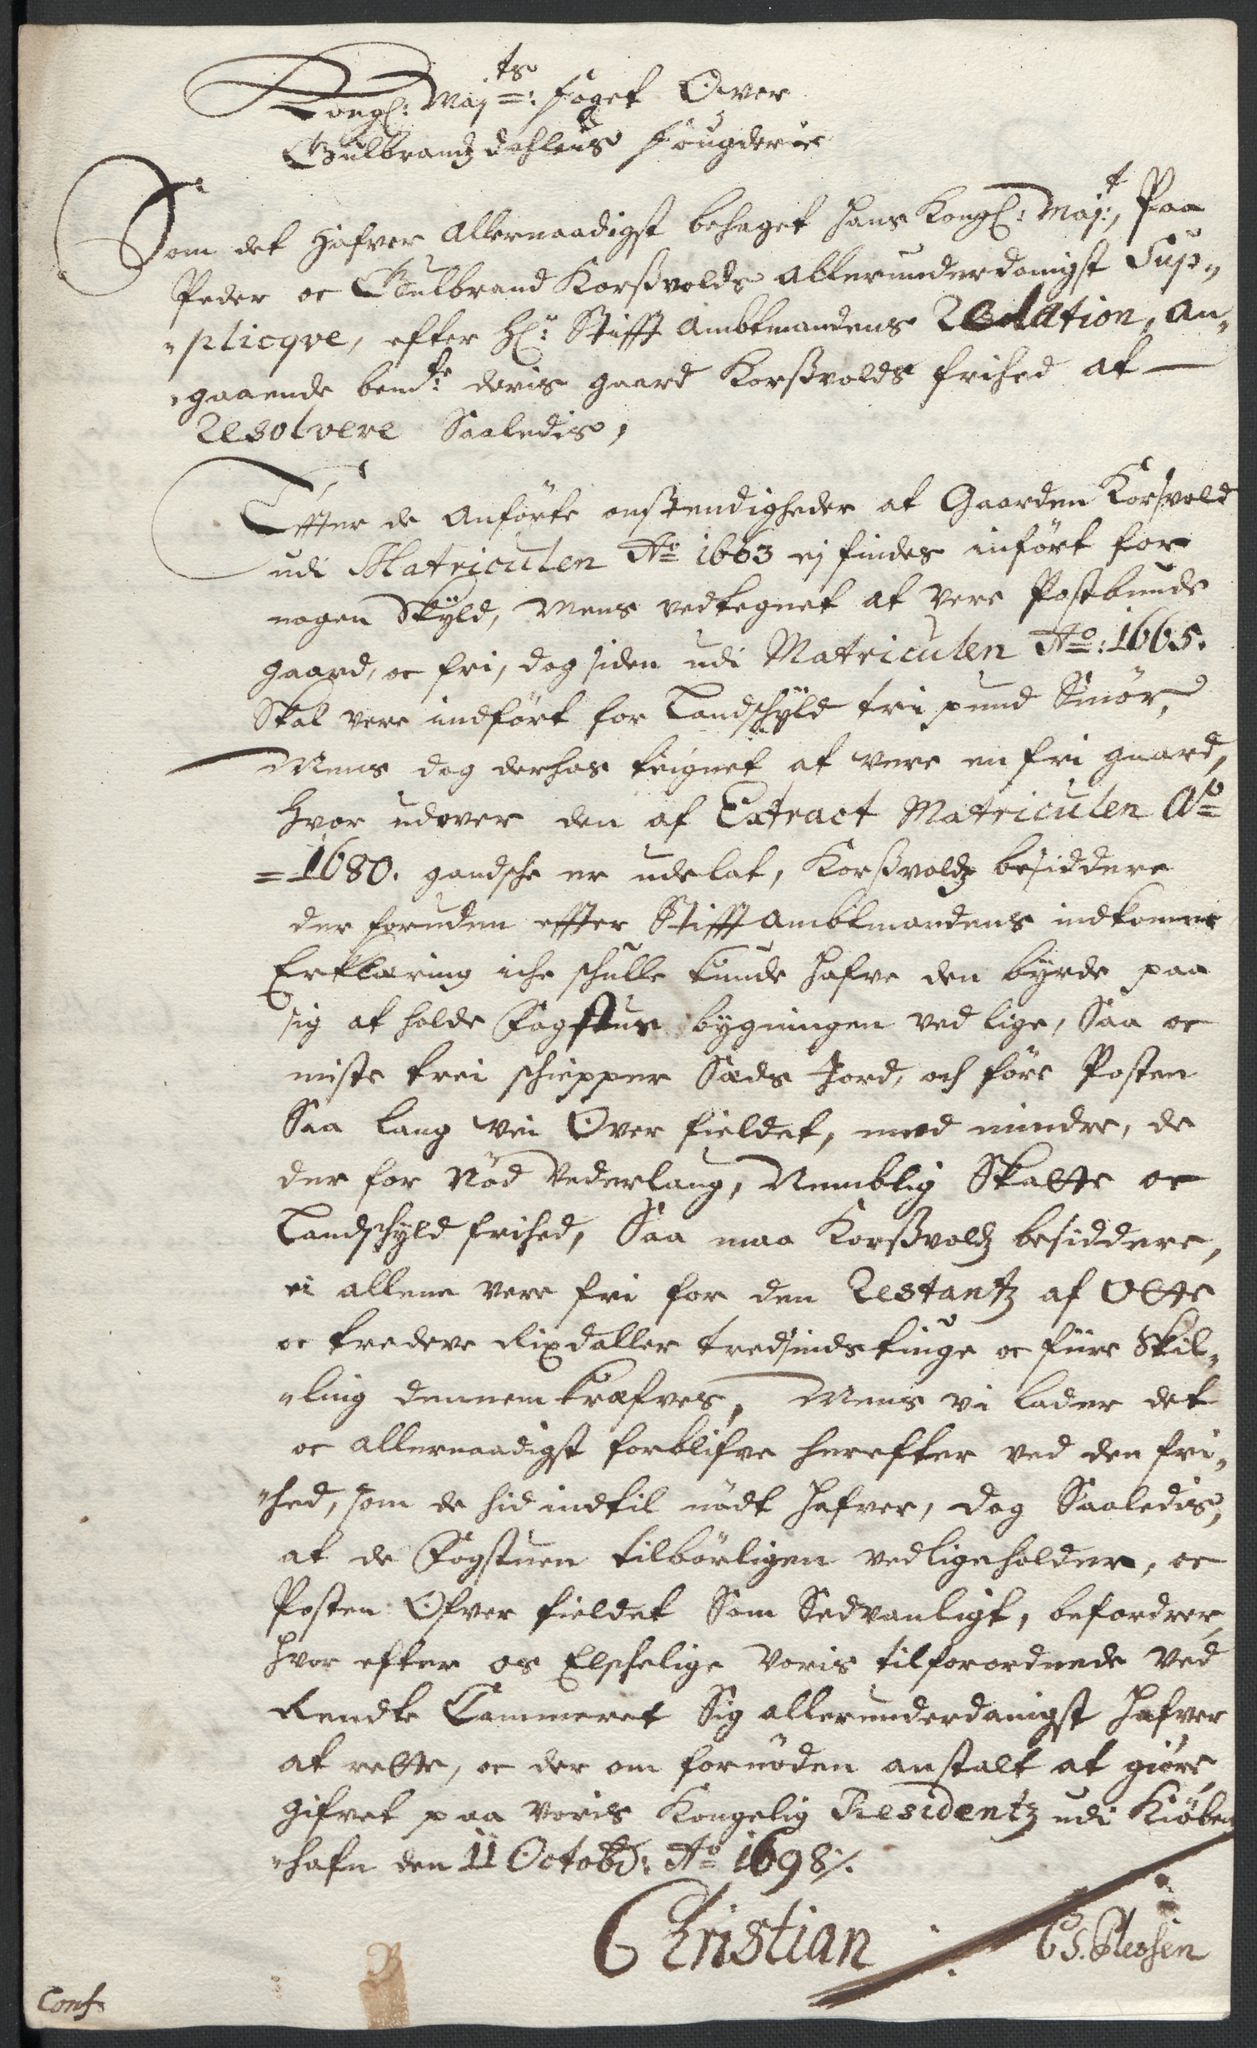 Kongl: Maj:ts foget Over
Gulbrandz dahlens fougderie
Som det hafver allernaadigst behaget hans Kongl: Maj:t, Paa
Peder oc Gulbrand Korßvolds allerunderdanigst Sup„
„plicqve, efter Hr: Stifft Ambtmandens Relation, an„
„gaaende bemte: deris gaard Korßvolds frihed at
Resolvere Saaledis,
Efter de anførte omstendigheder at Gaarden Korsvold
udi Matriculen Ao 1663 ej findes indført for
nogen Skyld, Mens vedtegnet at vere Postbunde
gaard, oc fri, dog siden udi Matriculen Ao: 1665.
Skal vere indført for Landschyld tri pund Smør,
Mens dog derhos teignet at vere en fri gaard,
hvor udover den af Extract Matriculen Ao
=1680. gandsche er udelat, Korßvoldz besiddere
der foruden effter Stifft Ambtmandens indkomne
Erklæring iche schulle kunde hafve den byrde paa
sig at holde Fogstue bygningen ved lige, Saa oc
miste trei schiepper Sæds Jord, och føre Posten
Saa lang vei Over fieldet, med mindre, de
der for nød Vederlaug, Nemblig Skatte oc
Landschyld frihed, Saa maa Korßvoldz besiddere,
ei allene vere fri for den Restantz af Otte
oc tredeve Rixdaller tredsindstiuge oc fiire Skil„
„ling dennem kræfves, Mens vi lader det
oc allernaadigst forblifve herefter ved den fri„
„hed, som de hid indtil nødt hafver, dog Saaledis,
at de Fogstuen tilbørligen vedligeholder, oc
Posten Ofver fieldet Som Sedvanligt, befordrer,
hvor efter os Elschelige Voris tilforordnede Ved
Rendte Cammeret Sig allerunderdanigst hafver
at rette, oc der om fornøden anstalt at giøre
gifvet paa Voris Kongelig Residentz udi Kiøben
„hafn den 11 Octobr: Ao 1698 ⁒.
Christian
C S. Plessen
Conf.